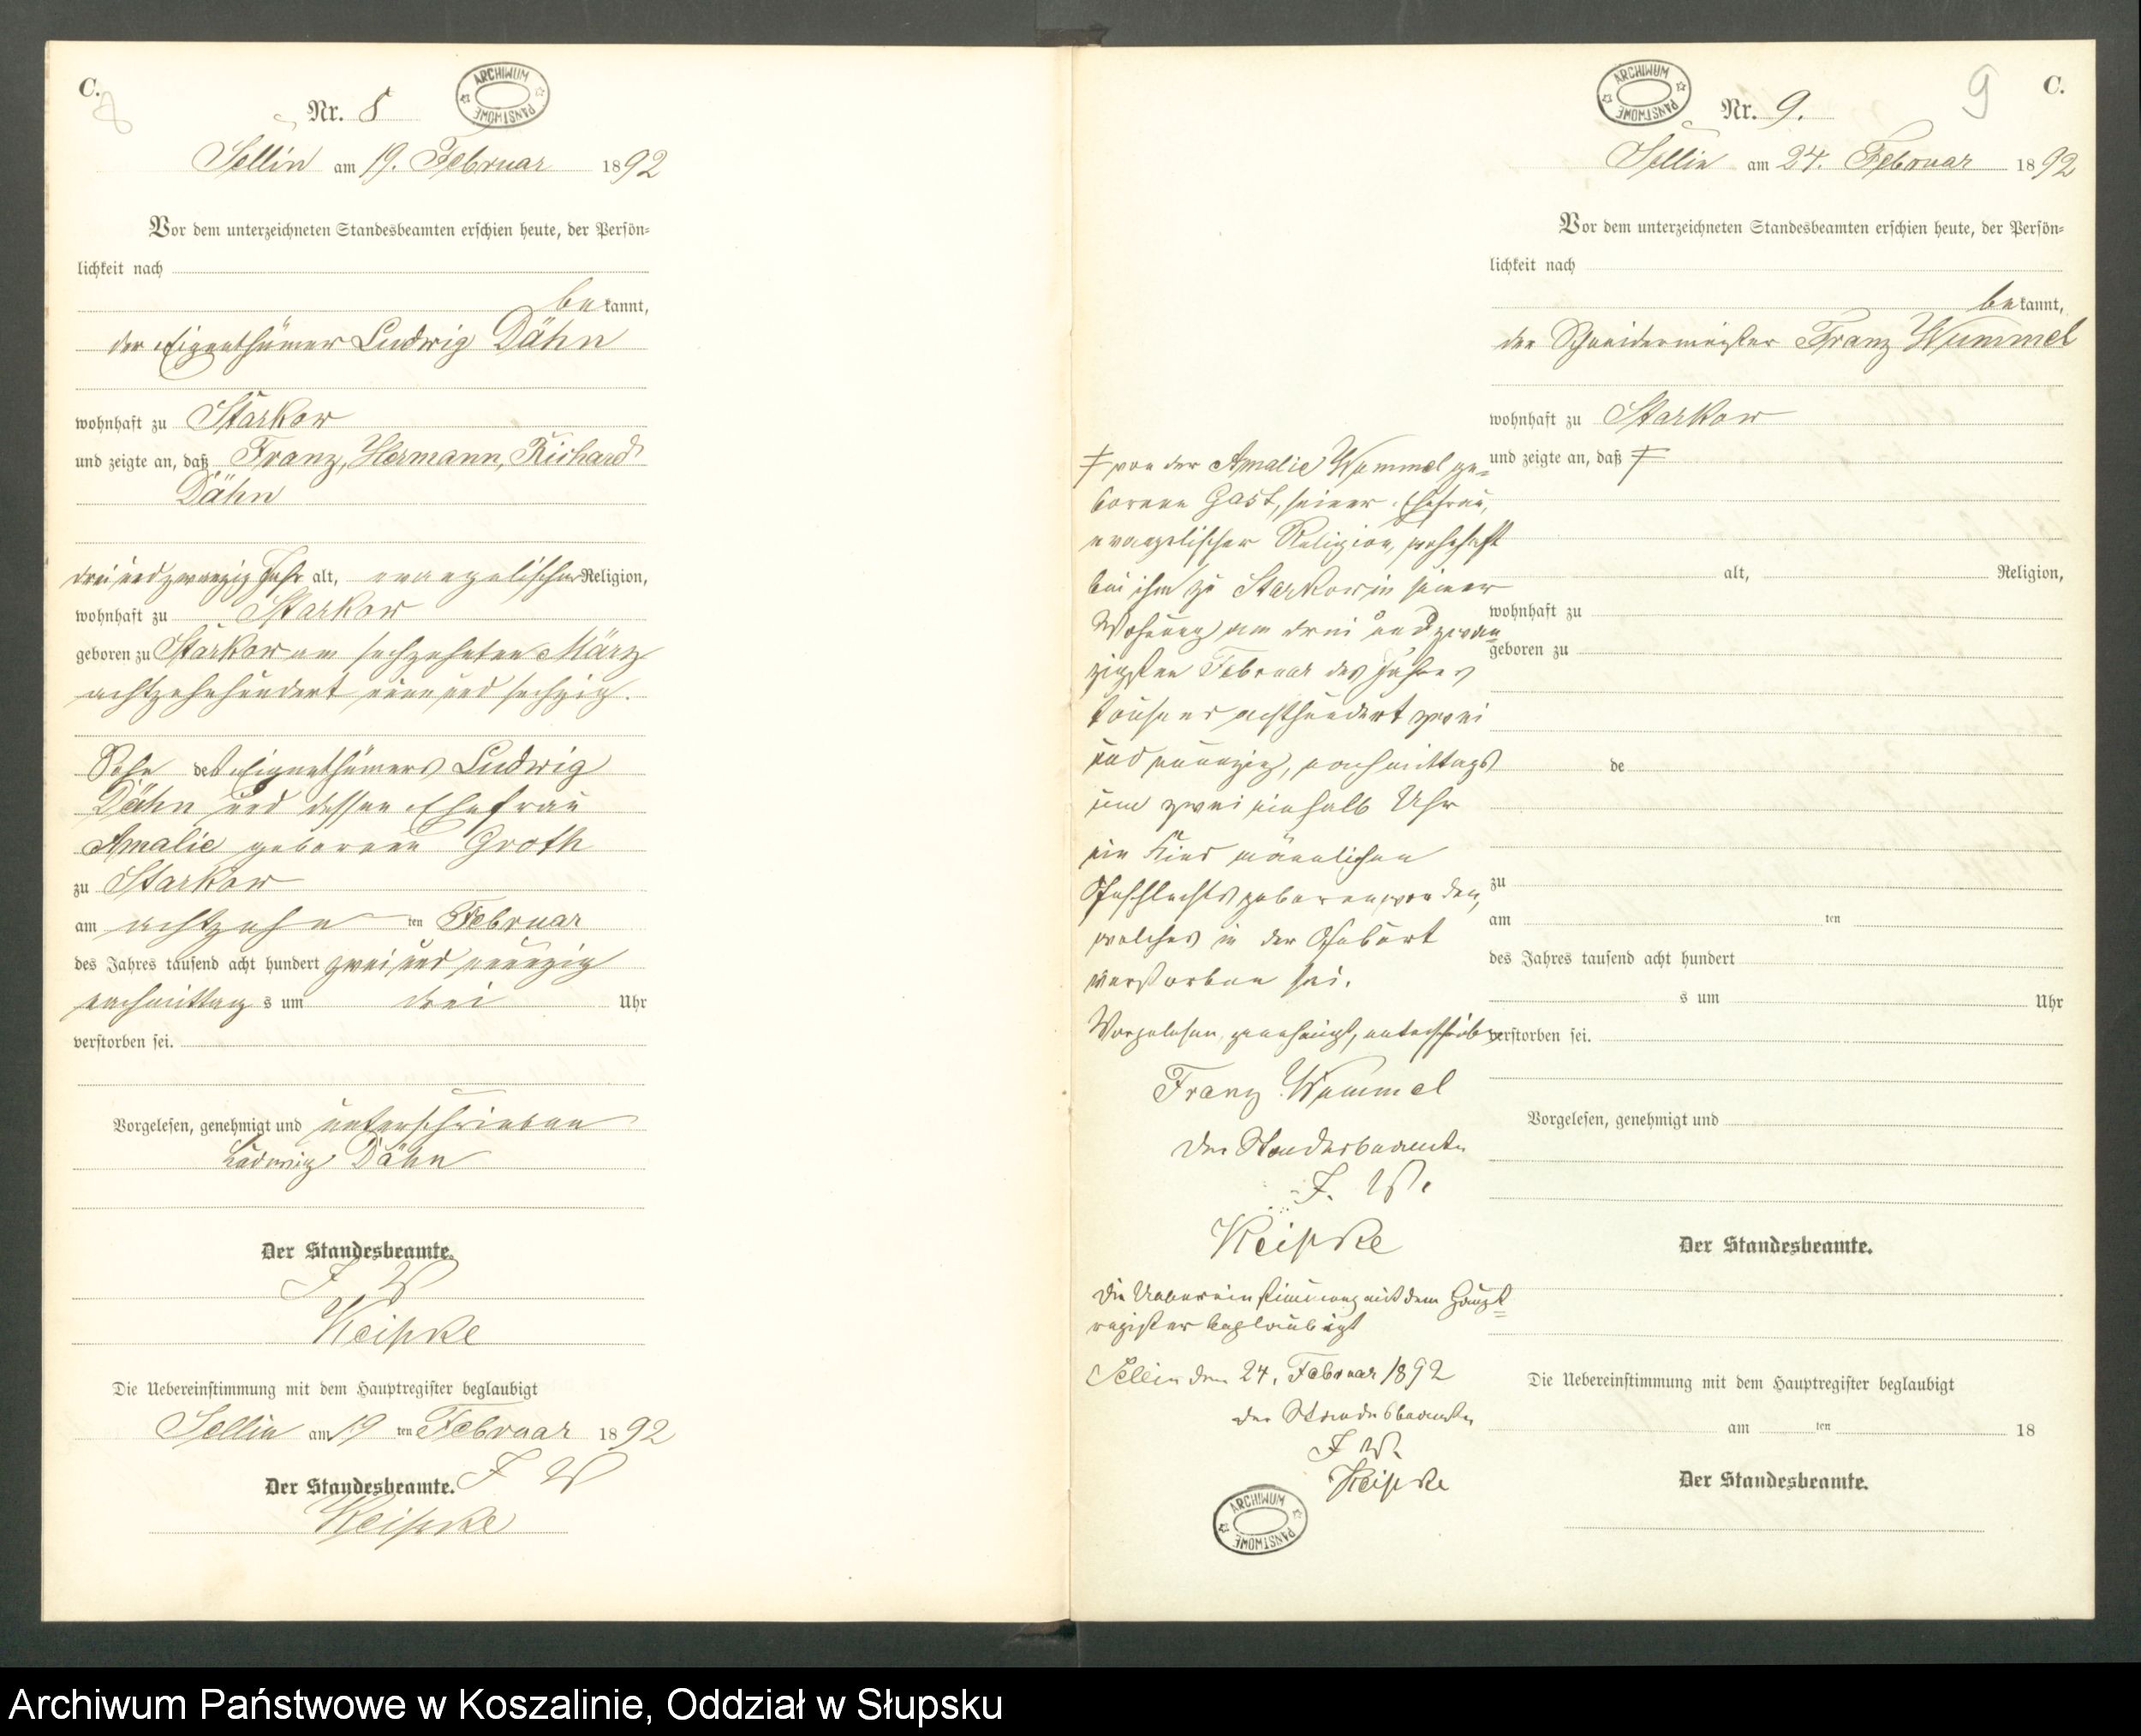 C.
8
Nr. 8
ARCHIWUM PAŃSTWOWE
Sellin am 19. Februar 1892
Vor dem unterzeichneten Standesbeamten erschien heute, der Persön=
lichkeit nach
bekannt,
der Eigenthümer Ludwig Dähn
wohnhaft zu Starkow
und zeigte an, daß Franz, Hermann, Richard
Dähn
drei und zwanzig Jahr alt, evangelischer Religion,
wohnhaft zu Starkow
geboren zu Starkow am sechzehnten März
achtzehnhundert neun und sechzig.
Sohn des Eigenthümers Ludwig
Dähn und dessen Ehefrau
Amalie geborene Groth
zu Starkow
am achtzehn ten Februar
des Jahres tausend acht hundert zwei und neunzig
nachmittag s um drei Uhr
verstorben sei.
Vorgelesen, genehmigt und unterschrieben
Ludwig Dähn
Der Standesbeamte.
I. V.
Keipke
Die Uebereinstimmung mit dem Hauptregister beglaubigt
Sellin am 19 ten Februar 1892
Der Standesbeamte. I. V.
Keipke
ARCHIWUM PAŃSTWOWE
Nr. 9.
9
C.
Sellin am 24. Februar 1892
Vor dem unterzeichneten Standesbeamten erschien heute, der Persön=
lichkeit nach
bekannt,
der Schneidermeister Franz Wummel
wohnhaft zu Starkow
und zeigte an, daß ‡
alt, Religion,
wohnhaft zu
geboren zu
de
zu
am ten
des Jahres tausend acht hundert
s um Uhr
verstorben sei.
Vorgelesen, genehmigt und
Der Standesbeamte.
Die Uebereinstimmung mit dem Hauptregister beglaubigt
am ten 18
Der Standesbeamte.
‡ von der Amalie Wummel ge=
borenen Gast, seiner Ehefrau,
evangelischer Religion, wohnhaft
bei ihm zu Starkow in seiner
Wohnung am drei und zwan=
zigsten Februar des Jahres
tausend achthundert zwei
und neunzig, nachmittags
um zwei einhalb Uhr
ein Kind männlichen
Geschlechts geboren worden,
welches in der Geburt
verstorben sei.
Vorgelesen, genehmigt, unterschrieben
Franz Wummel
Der Standesbeamte
I. V.
Keipke
Die Uebereinstimmung mit dem Haupt=
register beglaubigt
Sellin den 24. Februar 1892
Der Standesbeamte
I. V.
Keipke
ARCHIWUM PAŃSTWOWE
Archiwum Państwowe w Koszalinie, Oddział w Słupsku